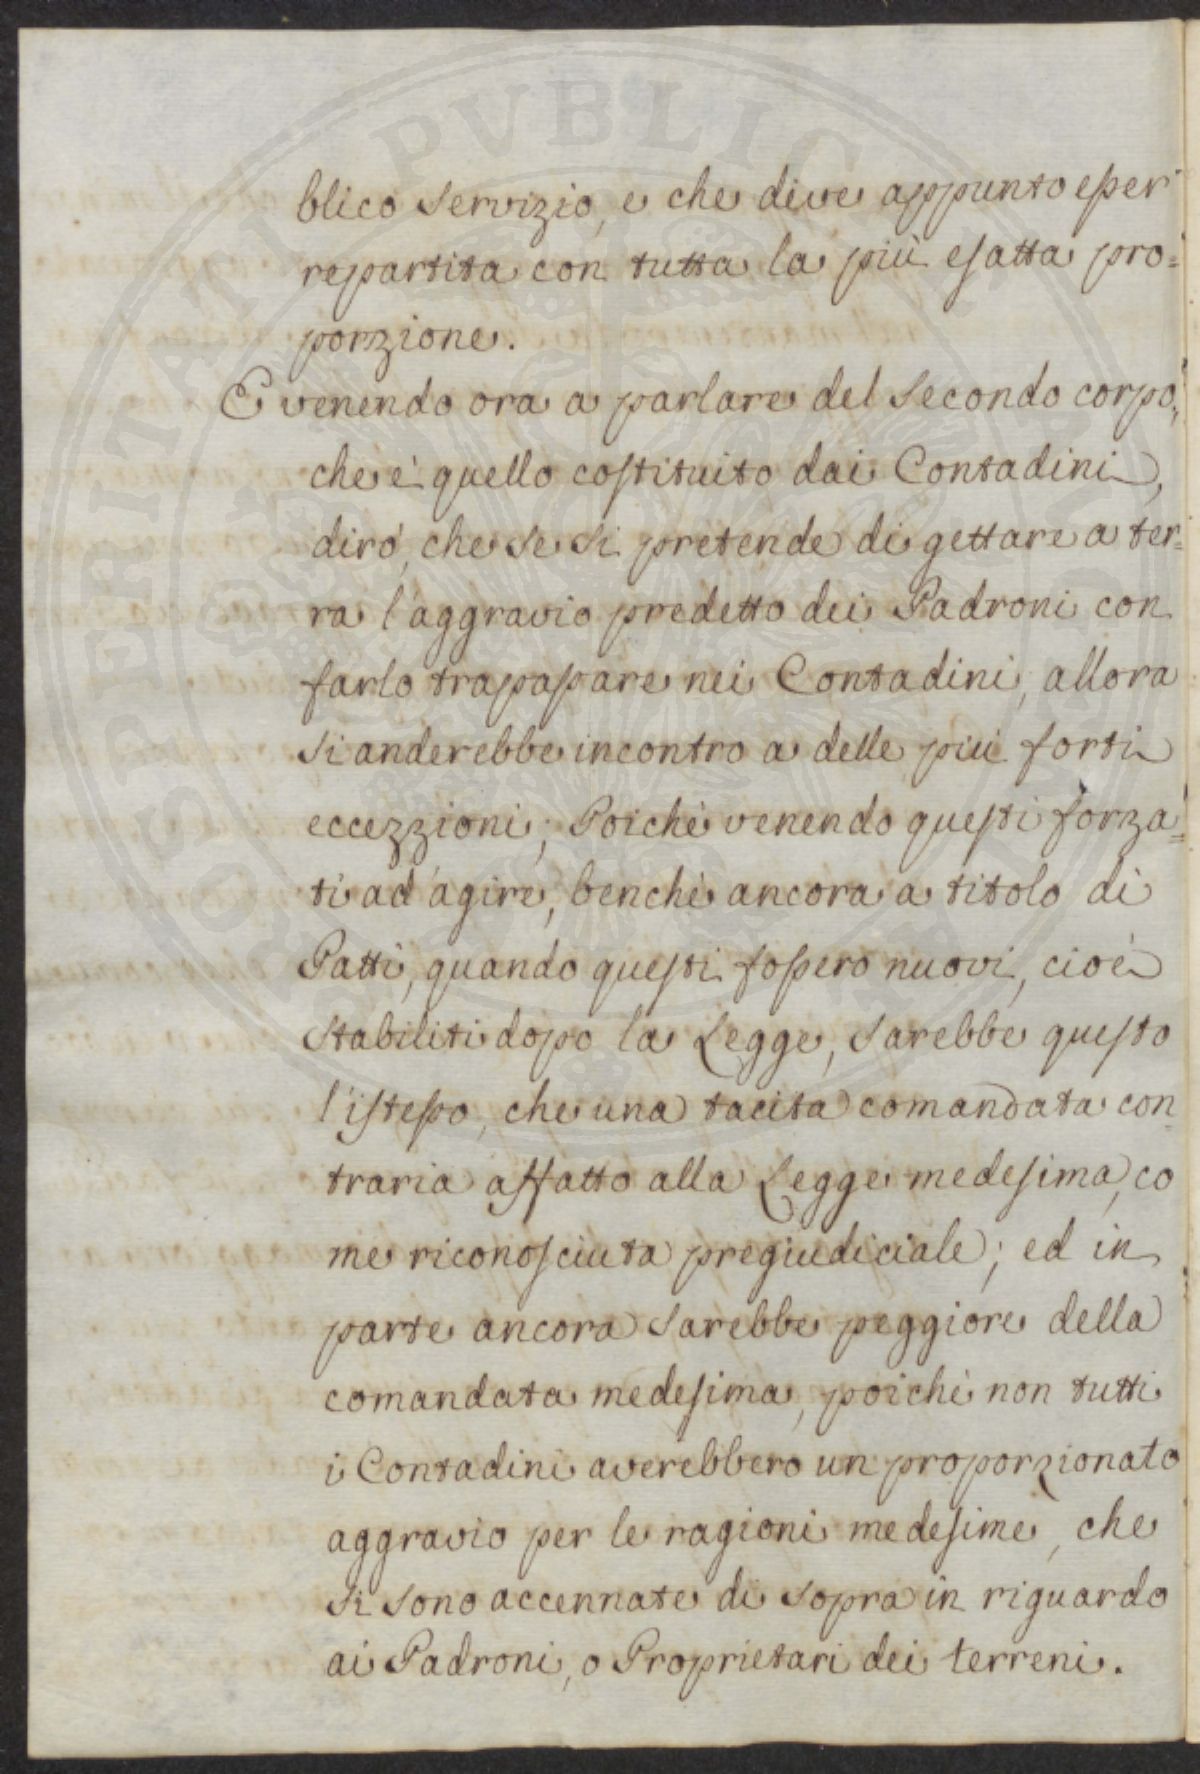 blico Servizio, e che deve appunto esser
repartita con tutta la più esatta pro=
porzione.
E venendo ora a parlare del Secondo corpo,
che è quello costituito dai Contadini,
dirò, che se si pretende di gettare a ter=
ra l'aggravio predetto dei Padroni con
farlo trapassare nei Contadini, allora
si anderebbe incontro a delle più forti
eccezzioni; Poichè venendo questi forza=
ti ad agire, benchè ancora a titolo di
Patti, quando questi fossero nuovi, cioè
Stabiliti dopo la Legge, Sarebbe questo
l'istesso, che una tacita comandata con=
traria affatto alla Legge medesima, co
me riconosciuta pregiudiciale; ed in
parte ancora Sarebbe peggiore della
comandata medesima, poichè non tutti
i Contadini averebbero un proporzionato
aggravio per le ragioni medesime, che
si sono accennate di sopra in riguardo
ai Padroni, o Proprietari dei terreni.
PROSPERITATI PVBLICAE